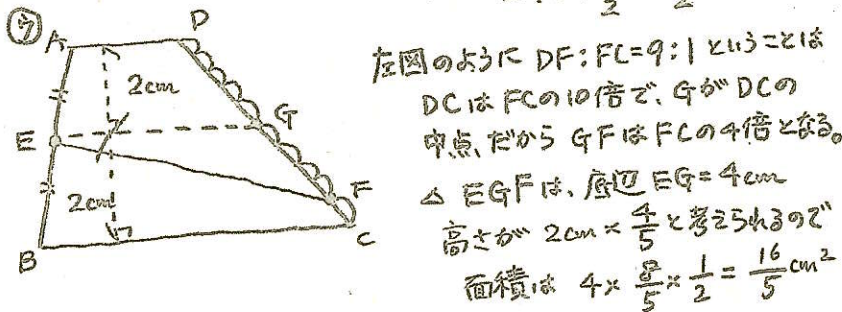 ㋒
A
D
2cm
G
E
2cm
F
B
C
左図のように DF:FC=9:1 ということは
DCはFCの10倍で、GがDCの
中点、だから GFはFCの4倍となる。
△EGFは、底辺EG=4cm
高さが 2cm×4/5 と考えられるので
面積は 4×8/5×1/2=16/5cm²